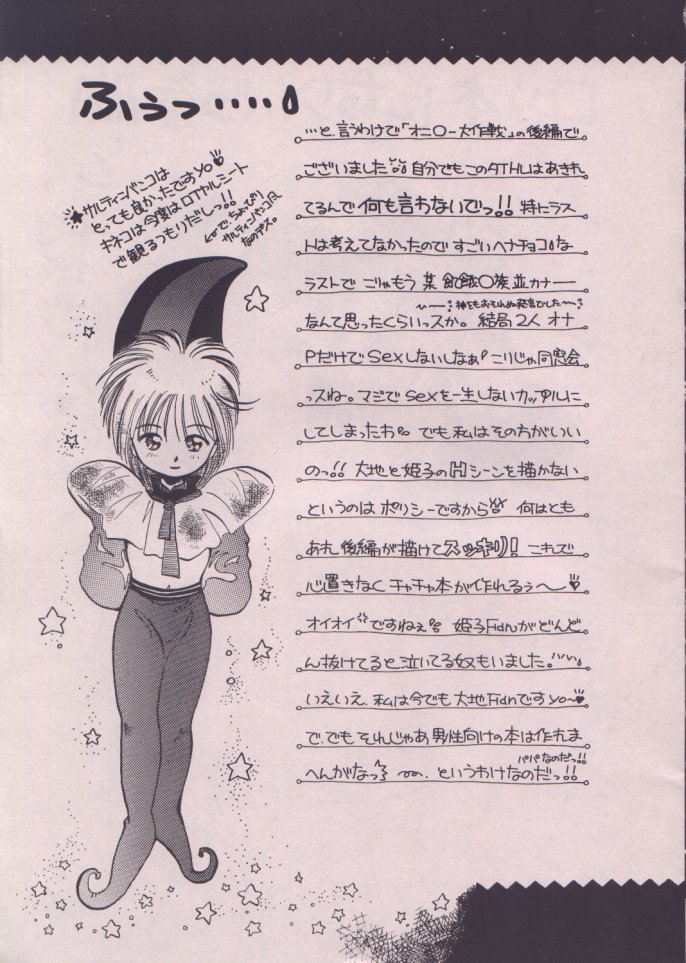 ふぅっ‥‥
サルティンバンコは
とっても良かったですyo♥
キネコは今度はロイヤルシート
で観るつもりだしっ!!
で、ちょっぴり
サルティンバンコ風
なのデス。
…と、言うわけで「オニ〇ー大作戦」の後編で
ございました 自分でもこのTATHLはあきれ
てるんで何も言わないでっ!! 特にラス
トは考えてなかったのですごいヘナチョコな
ラストで ごゃもう 某 飢餓〇族並カナー
神をもおそれぬ発言でした
なんて思ったくらいっスか。 結局2人 オナ
PだけでSexしないしなぁ こりじゃ同窓会
っスね。マジでsexを一生しないカップルに
してしまったわ でも私はその方がいい
のっ!! 大地と姫子のHシーンを描かない
というのは ポリシーですから 何はとも
あれ後編が描けてスッキリ! これで
心置きなくチャチャ本が作れるぅ〜♥
オイオイ ですねぇ 姫子Fanがどんど
ん抜けてると泣いてる奴もいました。
いえいえ、私は今でも大地Fanですyo〜♥
で、でも それじゃあ男性向けの本は作れま
へんがなっ というわけなのだっ!!
パパなのだっ!!